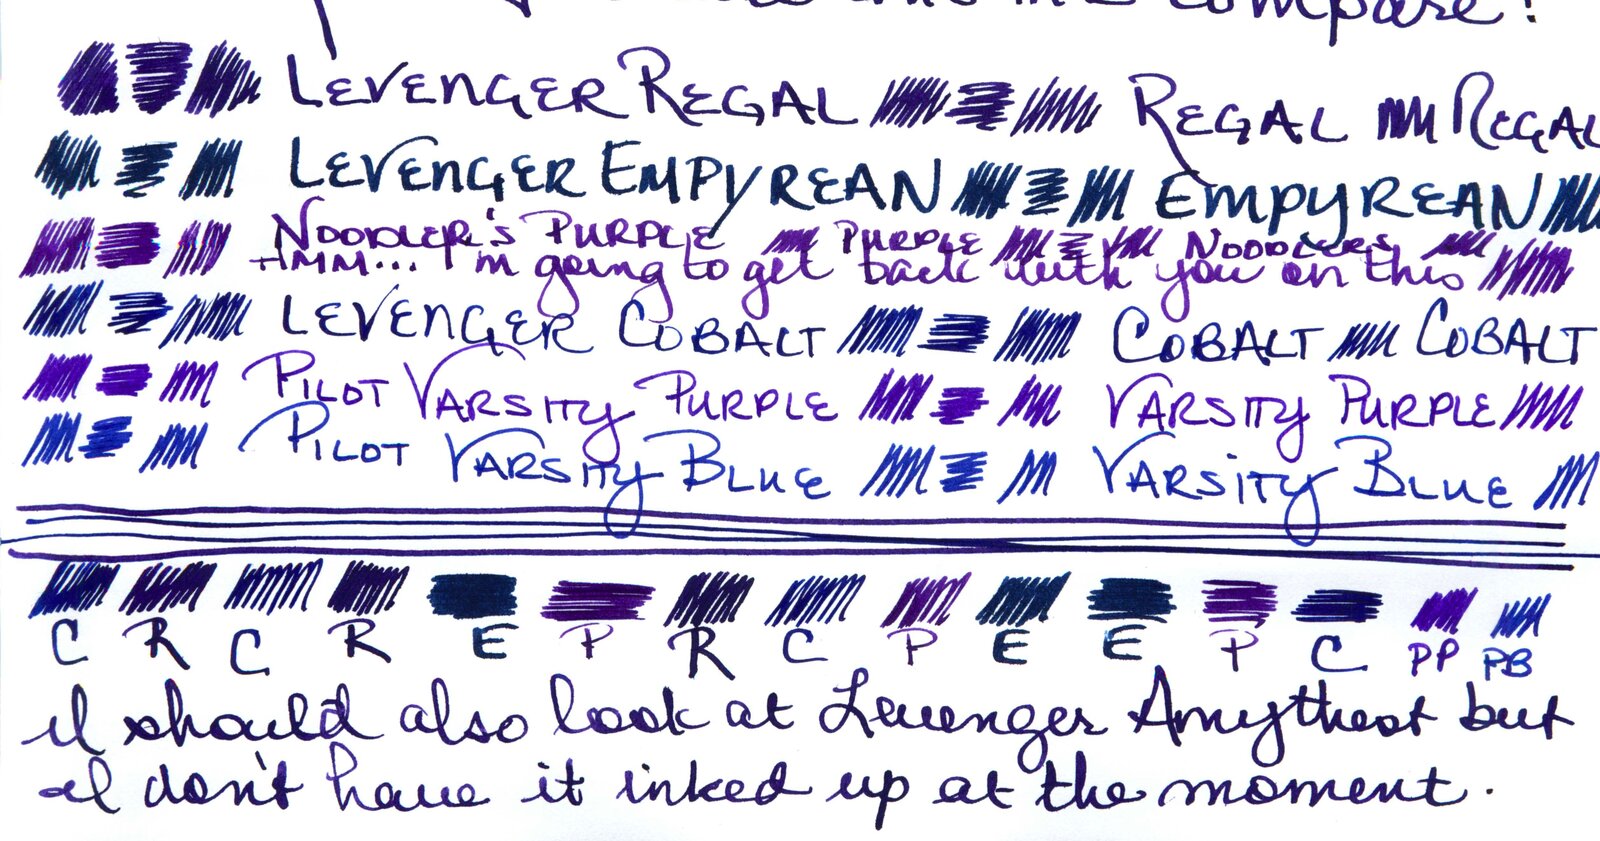 compare?
LEVENGER REGAL REGAL REGAL
LEVENGER EMPYREAN EMPYREAN
NOODLER'S PURPLE PURPLE NOODLERS
HMM... I'm going to get back with you on this
LEVENGER COBALT COBALT COBALT
PILOT VARSITY PURPLE VARSITY PURPLE
PILOT VARSITY BLUE VARSITY BLUE
C R C R E P R C P E E P C PP PB
I should also look at Levenger Amythest but
I don't have it inked up at the moment.